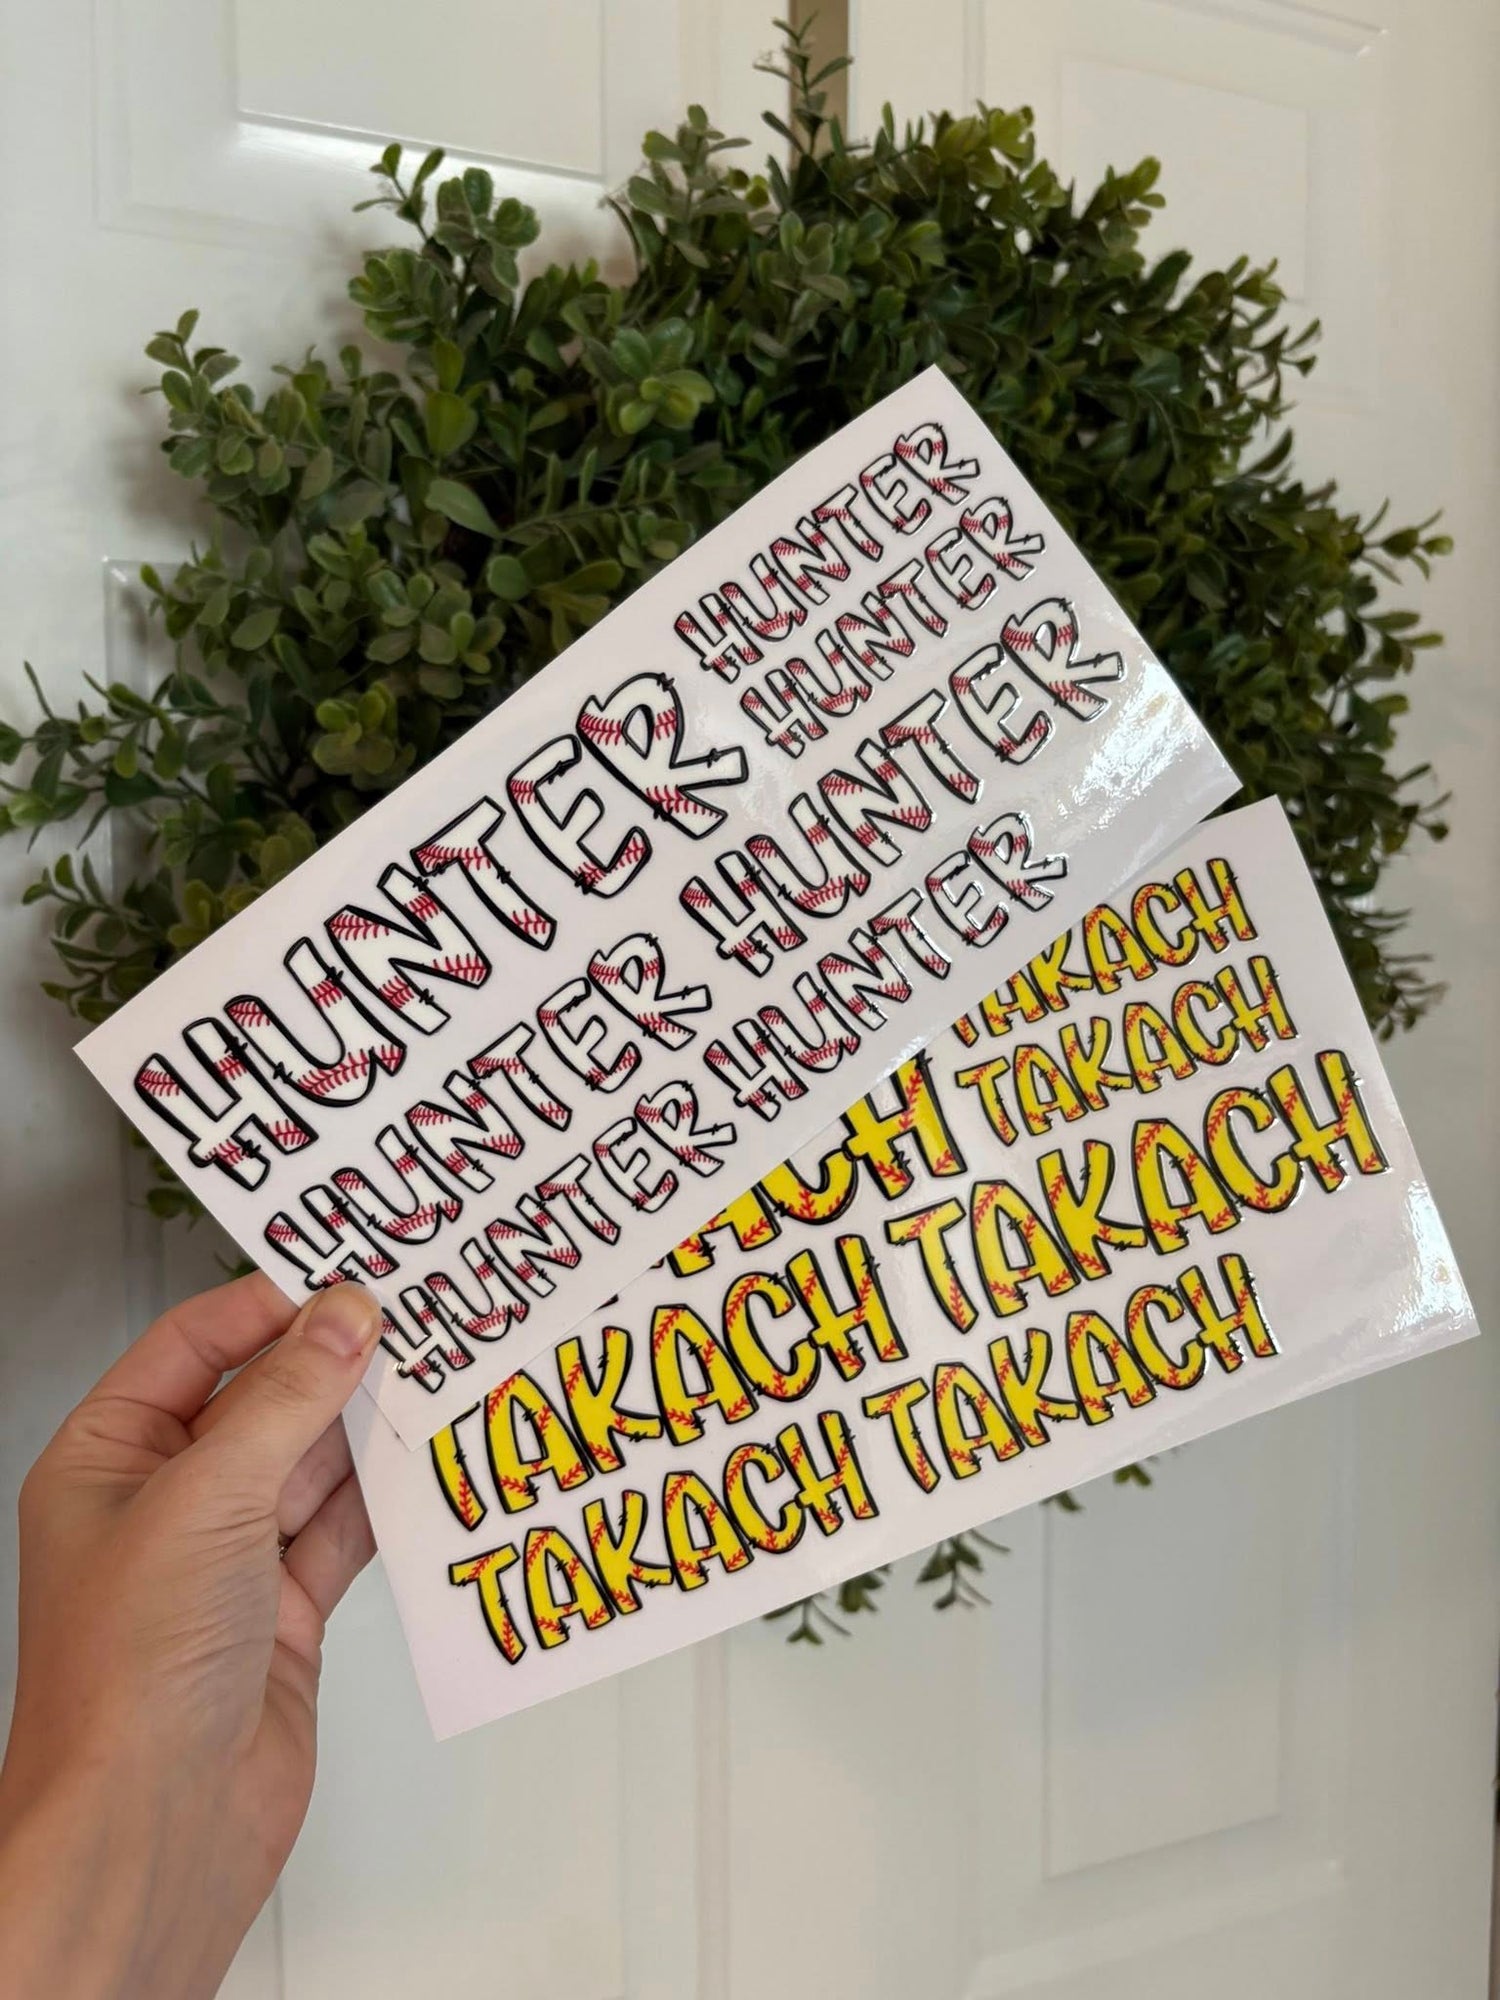 HUNTER
HUNTER
HUNTER
HUNTER
HUNTER
HUNTER
HUNTER
TAKACH
TAKACH
ACH
TAKACH
TAKACH
TAKACH
TAKACH